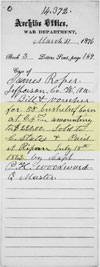 14.372.
Archive Office,
WAR DEPARTMENT,
March 11 1876
Book 3 Letters Sent, page 149
Copy of
James Roper
Jefferson Co. W. Va.
Bill & voucher
for 88 bushels corn
at
amounting
to $22000. Sold to
C. States & Paid
at
July 18
1863. by Capt
Woodward
Q. Master.